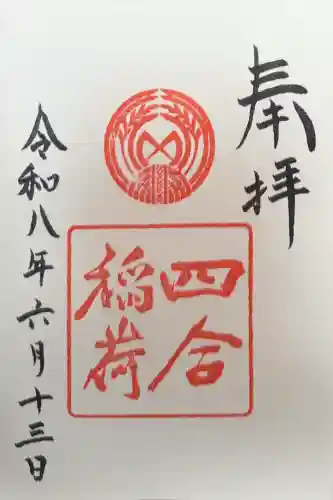 奉拝
四合
稲荷
令和八年六月十三日